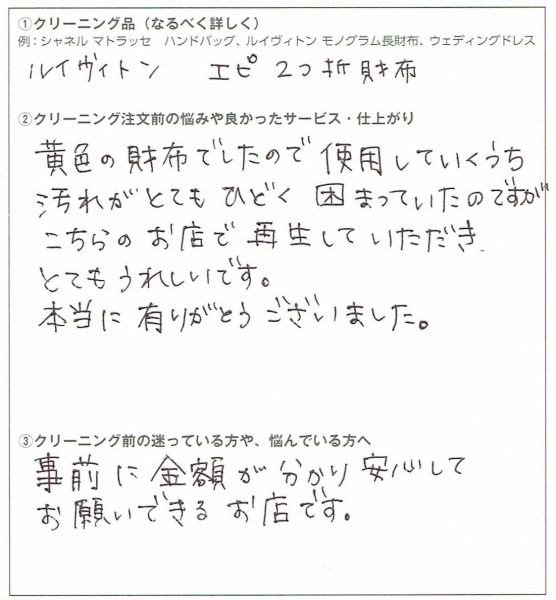 ①クリーニング品（なるべく詳しく）
例：シャネル マトラッセ　ハンドバッグ、ルイヴィトン モノグラム長財布、ウェディングドレス
ルイヴィトン　エピ 2つ折財布
②クリーニング注文前の悩みや良かったサービス・仕上がり
黄色の財布でしたので 使用していくうち
汚れがとても ひどく 困まっていたのですが
こちらの お店で 再生して いただき、
とても うれしいです。
本当に 有りがとう ございました。
③クリーニング前の迷っている方や、悩んでいる方へ
事前に 金額が 分かり 安心して
お願いできる お店です。